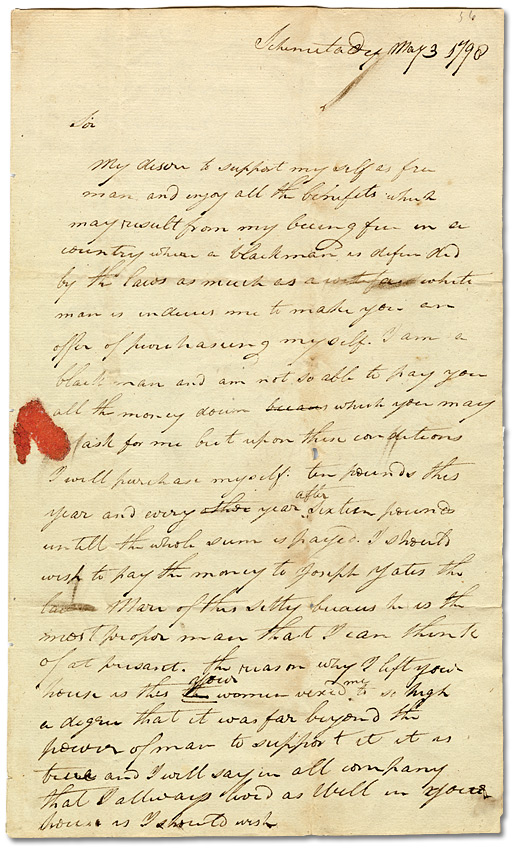 56
Schenectady May 3 1798
Sir
My desire to support my self as free
man and enjoy all the benefits which
may result from my being free in a
country where a blackman is defended
by the laws as much as a white
man is induces me to make you an
offer of purchasing my self. I am a
black man and am not so able to pay you
all the money down becaus which you may
ask for me but upon these conditions
I will purchase myself. ten pounds this
year and every other year after sixteen pounds
untill the whole sum is payed. I should
wish to pay the money to Joseph Yates the
Mare of this sitty becaus he is the
most propor man that I can think
of at present. the reason why I left your
house is this your women vexed me to so high
a degree that it was far beyond the
power of man to support it it is
true and I will say in all company
that I allways lived as well in your
house as I should wish